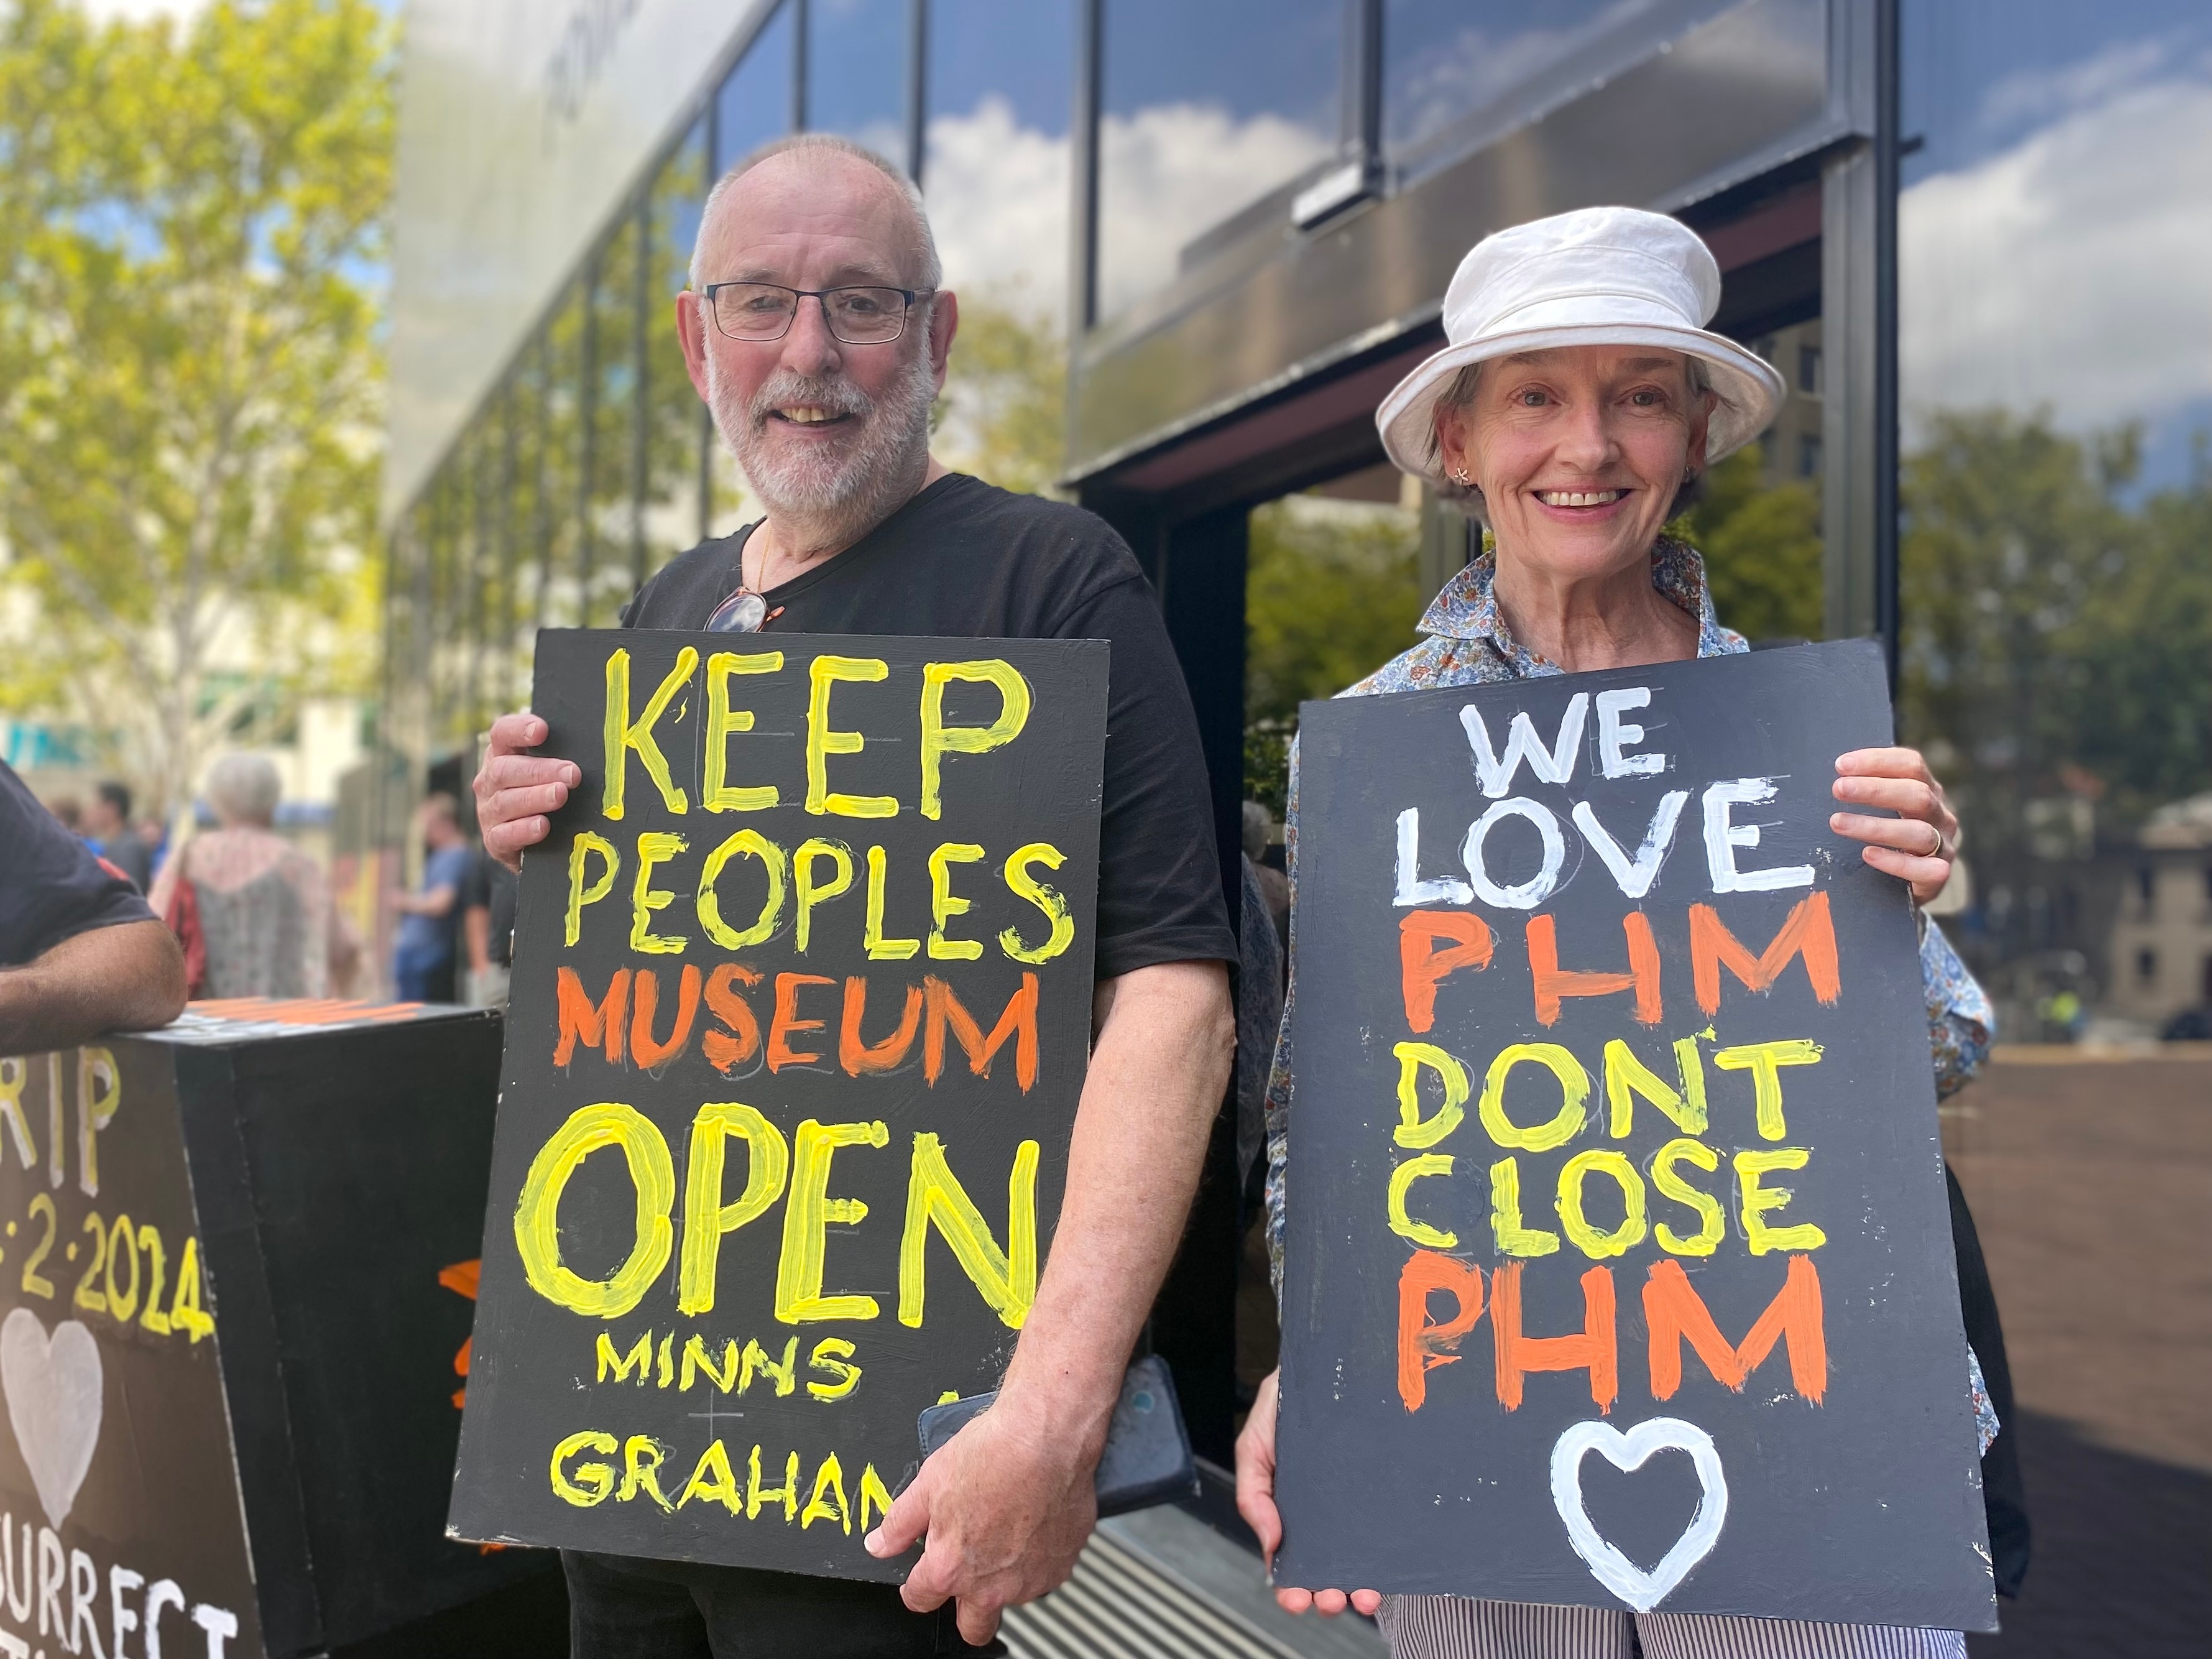 KEEP
PEOPLES
MUSEUM
OPEN
MINNS
GRAHAM
WE
LOVE
PHM
DONT
CLOSE
PHM
RIP
2·2024